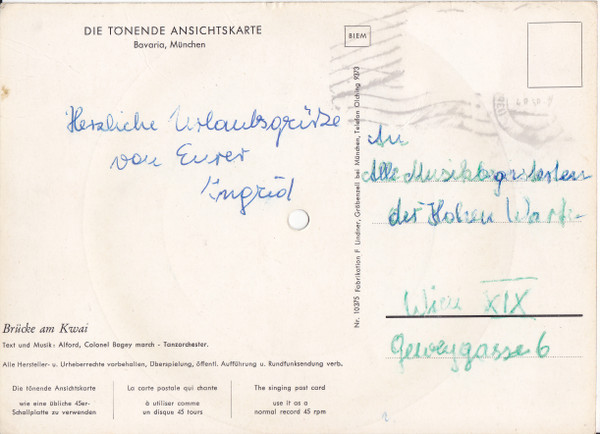 DIE TÖNENDE ANSICHTSKARTE
Bavaria, München
BIEM
Herzliche Urlaubsgrüße
von Eurer
Ingrid
An
Alle Musikbegeisterten
der Hohen Warte
Wien XIX
Geweygasse 6
Nr. 10375 Fabrikation F Lindner, Gröbenzell bei München, Telefon Olching 9373
Brücke am Kwai
Text und Musik: Alford, Colonel Bogey march - Tanzorchester.
Alle Hersteller- u. Urheberrechte vorbehalten, Überspielung, öffentl. Aufführung u. Rundfunksendung verb.
Die tönende Ansichtskarte
wie eine übliche 45er-
Schallplatte zu verwenden
La carte postale qui chante
à utiliser comme
un disque 45 tours
The singing post card
use it as a
normal record 45 rpm